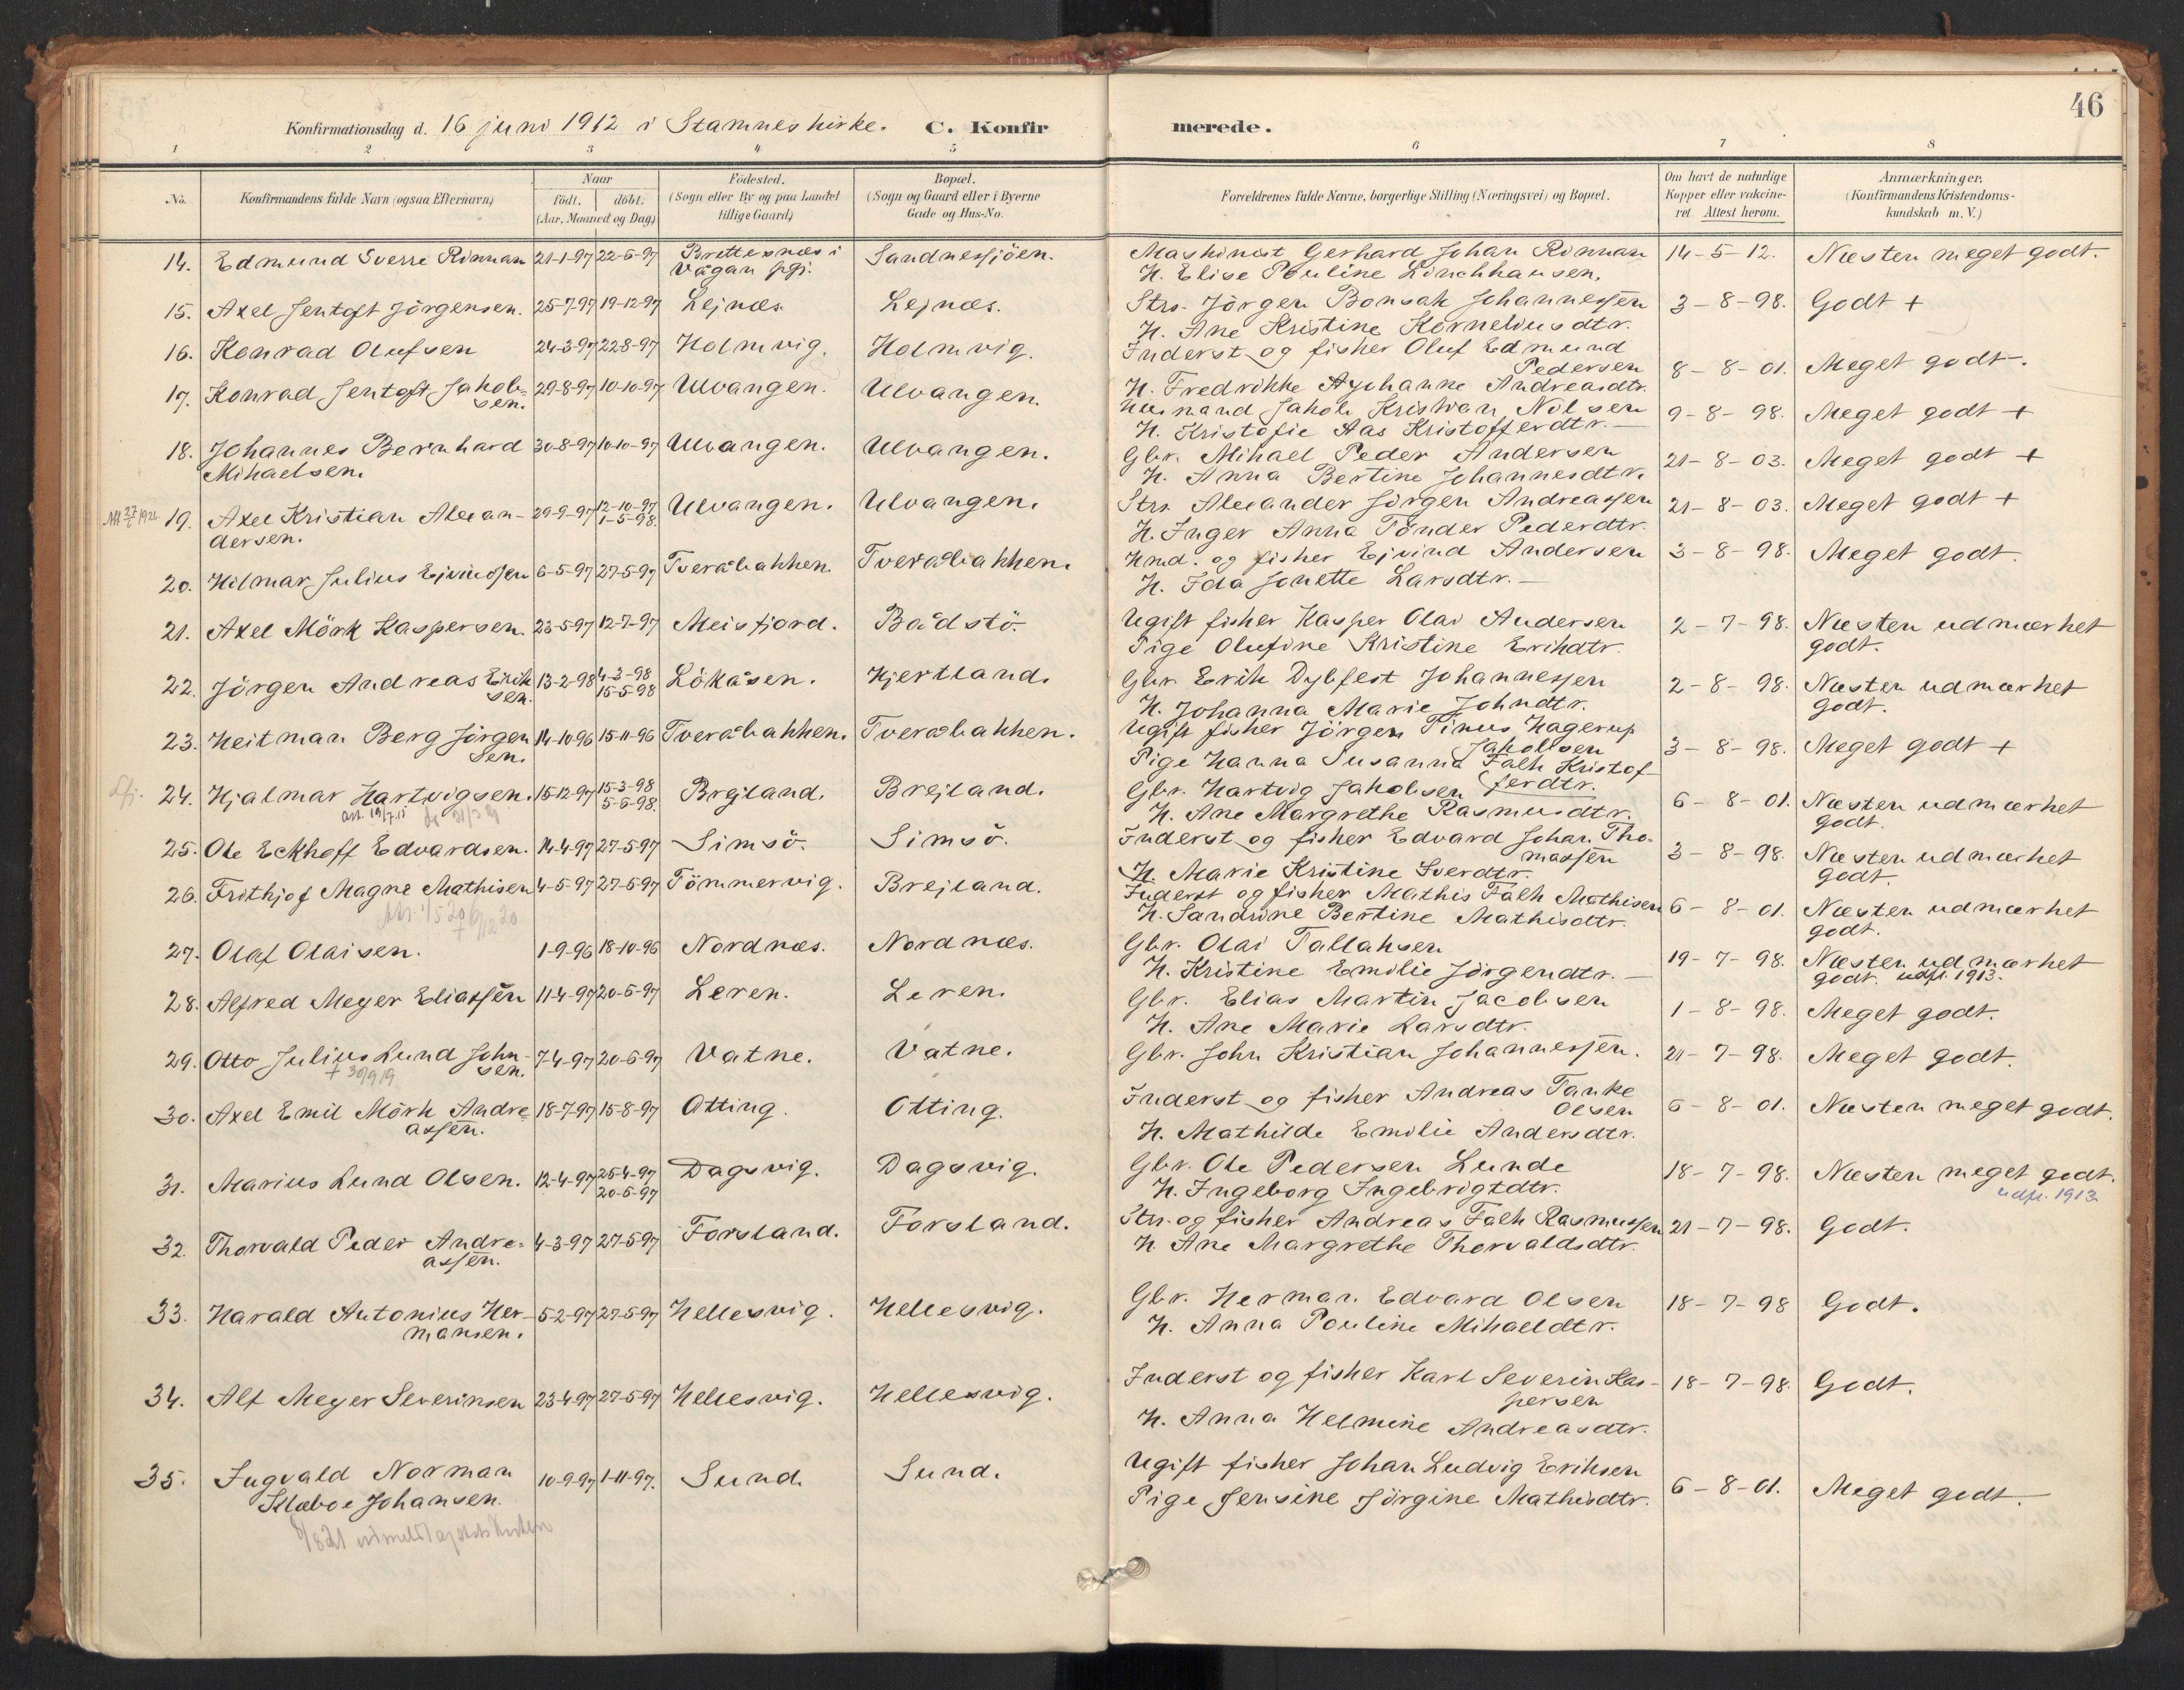 46
Konfirmationsdag d. 16 juni 1912 i Stamnes kirke. C. Konfir merede.
1 2 3 4 5 6 7 8
No. Konfirmandens fulde Navn (ogsaa Efternavn) Naar født. døbt. (Aar, Maaned og Dag) Fødested. (Sogn eller By og paa Landet tillige Gaard) Bopæl. (Sogn og Gaard eller i Byerne Gade og Hus-No. Forældrenes fulde Navne, borgerlige Stilling (Næringsvei) og Bopæl. Om havt de naturlige Kopper eller vakcineret. Attest herom. Anmærkninger, (Konfirmandens Kristendomskundskab m. V.)
14. Edmund Sverre Rinnan 21-1-97 22-6-97 Brettesnæs i Vågan pgj. Sandnessjöen. Maskinist Gerhard Johan Rinnan 14-5-12. Næsten meget godt.
H. Elise Pouline Linchhausen.
15. Axel Jentoft Jörgensen. 25-7-97 19-12-97 Lejnæs. Lejnæs. Strs. Jörgen Bonsak Johannessen 3-8-98. Godt +
H. Ane Kristine Korneliusdtr.
16. Konrad Olufsen 24-3-97 22-8-97 Holmvig. Holmvig. Inderst og fisker Oluf Edmund
Pedersen 8-8-01. Meget godt.
H. Fredrikke Ajohanne Andreasdtr.
17. Konrad Jentoft Jakobsen. 29-8-97 10-10-97 Ulvangen. Ulvangen. Husmand Jakob Kristian Nilsen 9-8-98. Meget godt +
H. Kristofie Aas Kristofferdtr.
18. Johannes Bernhard 30-8-97 10-10-97 Ulvangen. Ulvangen. Gbr. Mihael Peder Andersen 21-8-03. Meget godt +
Mihaelsen. H. Anna Bertine Johannesdtr.
19. Axel Kristian Alexan- 29-9-97 12-10-97 1-5-98. Ulvangen. Ulvangen. Strs. Alexander Jörgen Andreassen 21-8-03. Meget godt +
dersen. H. Inger Anna Tönder Pederdtr.
20. Hilmar Julius Ejvindsen 6-5-97 27-5-97 Tveråbakken. Tveråbakken. Hmd. og fisker Ejvind Andersen 3-8-98. Meget godt.
H. Ida Jonette Larsdtr.
21. Axel Mörk Kaspersen. 23-5-97 12-7-97 Meisfjord. Bådstö. Ugift fisker Kasper Olai Andersen 2-7-98. Næsten udmærket
Pige Olufine Kristine Erikdtr. godt.
22. Jörgen Andreas Eriksen. 13-2-98 4-3-98 15-5-98 Lökåsen. Hjertland. Gbr. Erik Dybfest Johannessen 2-8-98. Næsten udmærket
H. Johanna Marie Johndtr. godt.
23. Heitman Berg Jörgen 14-10-96 15-11-96 Tveråbakken. Tveråbakken. Ugift fisker Jörgen Tinus Hagerup
sen. Jakobsen 3-8-98. Meget godt +
Pige Hanna Susanna Falk Kristof-
ferdtr.
24. Hjalmar Hartvigsen. 15-12-97 15-3-98 5-6-98. Brejland. Brejland. Gbr. Hartvig Jakobsen 6-8-01. Næsten udmærket
H. Ane Margrethe Rasmusdtr. godt.
25. Ole Eckhoff Edvardsen. 14-4-97 27-5-97 Simsö. Simsö. Inderst og fisker Edvard Johan Tho-
massen 3-8-98. Næsten udmærket
H. Marie Kristine Iverdtr. godt.
26. Frithjof Magne Mathisen 4-5-97 27-5-97 Tömmervig. Brejland. Inderst og fisker Mathis Falk Mathisen 6-8-01. Næsten udmærket
H. Sandrine Bertine Mathisdtr. godt.
27. Olaf Olaisen. 1-9-96 18-10-96 Nordnæs. Nordnæs. Gbr. Olai Tallaksen 19-7-98. Næsten udmærket
H. Kristine Emilie Jörgendtr. godt. udfl. 1913.
28. Alfred Meyer Eliassen 11-4-97 20-6-97 Leren. Leren. Gbr. Elias Martin Jacobsen 1-8-98. Meget godt.
H. Ane Marie Larsdtr.
29. Otto Julius Lund John- 7-4-97 20-6-97 Vatne. Vatne. Gbr. John Kristian Johannessen. 21-7-98. Meget godt.
sen.
30. Axel Emil Mörk Andre- 18-7-97 15-8-97 Otting. Otting. Inderst og fisker Andreas Tanke
assen. Olsen 6-8-01. Næsten meget godt.
H. Mathilde Emilie Andersdtr.
31. Marius Lund Olsen. 12-4-97 25-4-97 20-6-97 Dagsvig. Dagsvig. Gbr. Ole Pedersen Lunde 18-7-98. Næsten meget godt.
H. Ingeborg Ingebrigtdtr. udfl. 1913
32. Thorvald Peder Andre- 4-3-97 27-5-97 Forsland. Forsland. Strs. og fisker Andreas Falk Rasmussen 21-7-98. Godt.
assen. H. Ane Margrethe Thorvaldsdtr.
33. Harald Antonius Her- 5-2-97 27-5-97 Hellesvig. Hellesvig. Gbr. Herman Edvard Olsen 18-7-98 Godt.
mansen. H. Anna Pouline Mihaeldtr.
34. Alf Meyer Severinsen 23-4-97 27-5-97 Hellesvig. Hellesvig. Inderst og fisker Karl Severin Kas- 18-7-98. Godt.
persen
H. Anna Helmine Andreasdtr.
35. Ingvald Norman 10-9-97 1-11-97. Sund. Sund. Ugift fisker Johan Ludvig Eriksen 6-8-01. Meget godt.
Klæboe Johansen. Pige Jensine Jörgine Mathisdtr.